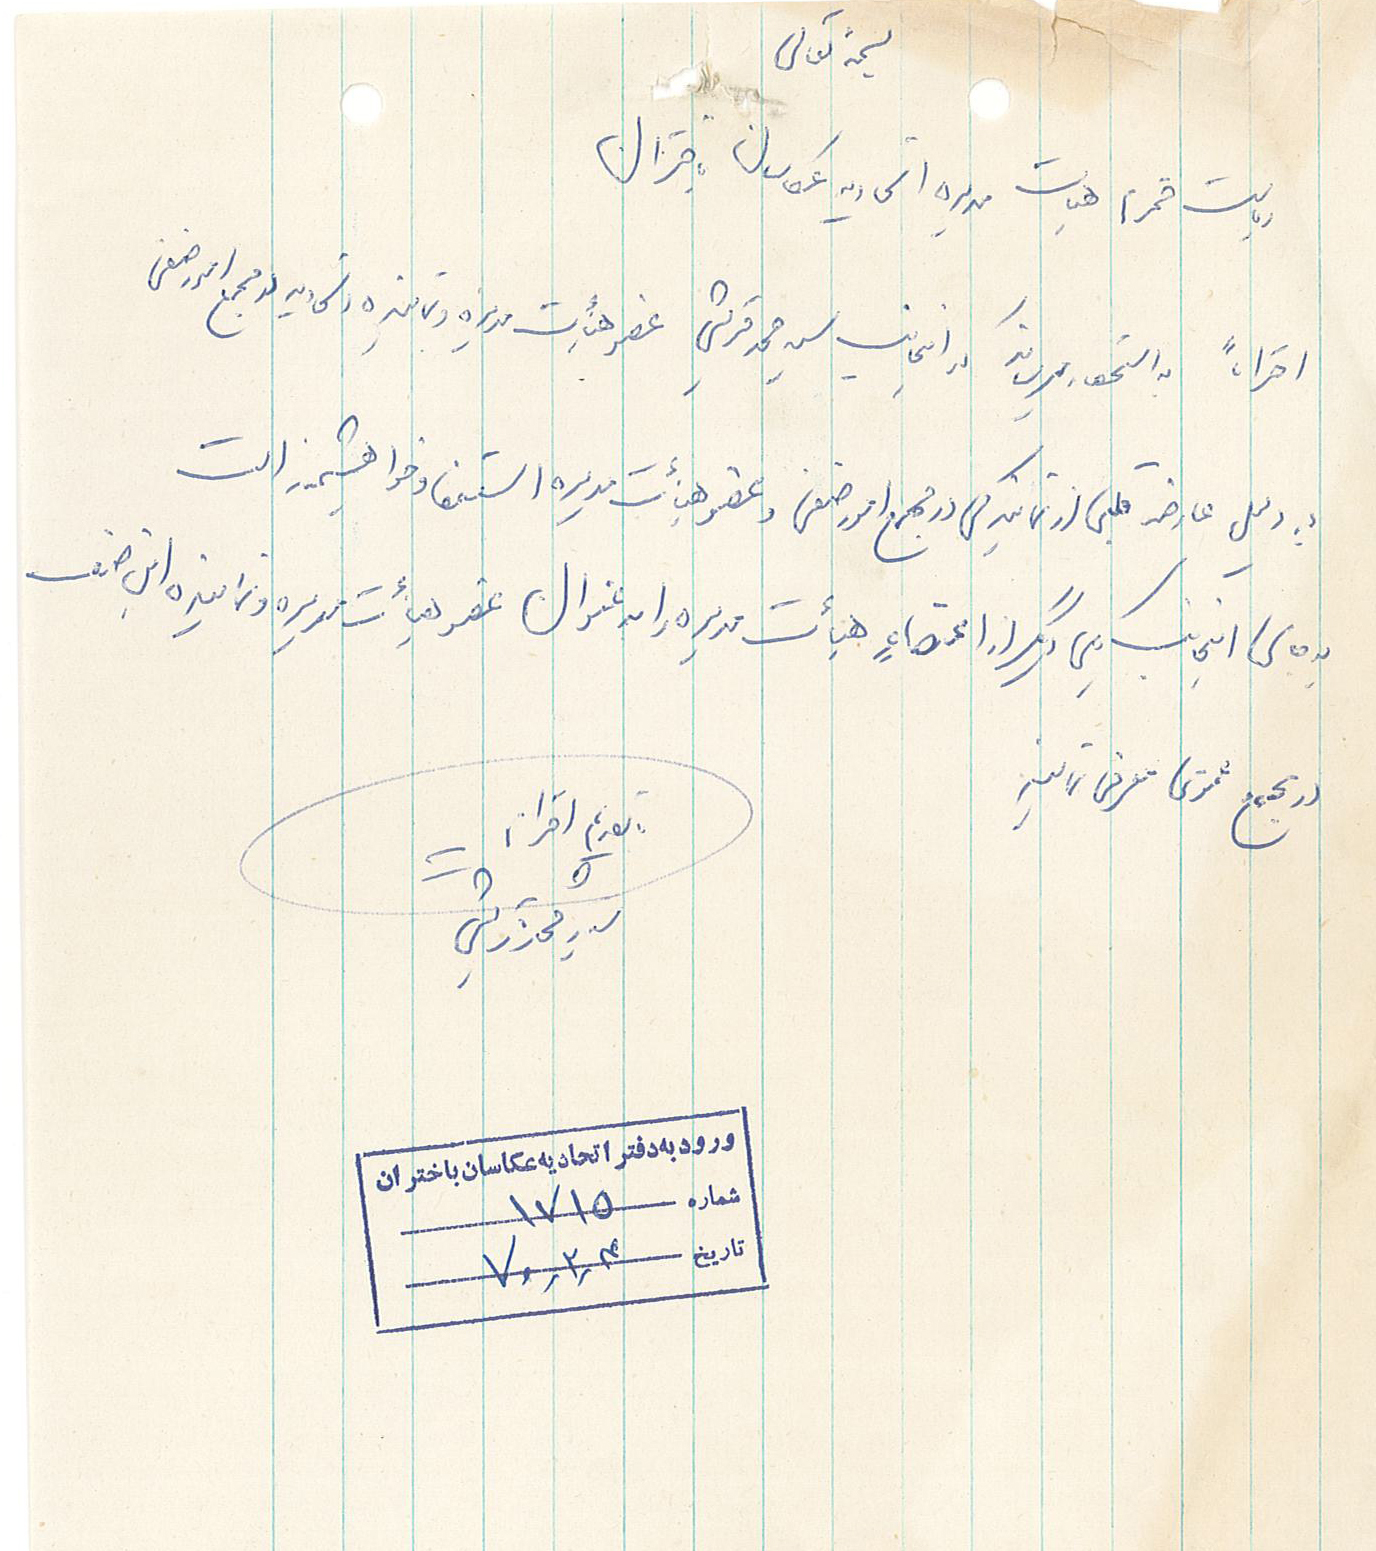 بسمه تعالی
ریاست محترم هیات مدیره اتحادیه عکاسان باختران
احتراماً به استحضار میرساند که اینجانب سید محمد قرشی عضو هیأت مدیره و نماینده اتحادیه در مجمع امور صنفی
به دلیل عارضه قلبی از نمایندگی در مجمع امور صنفی و عضو هیأت مدیره استعفا و خواهشمند است
به جای اینجانب یکی دیگر از اعضاء هیأت مدیره را به عنوان عضو هیأت مدیره و نماینده این صنف
در مجمع معرفی نمائید
با تقدیم احترامات
سید محمد قرشی
ورود به دفتر اتحادیه عکاسان باختران
شماره ۱۷۱۵
تاریخ ۷۰٫۲٫۴